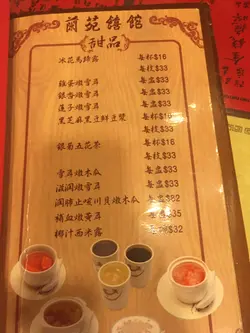 蘭苑饎館
甜品
冰花馬蹄露 每杯$16
每枝$33
雞蛋燉雪耳 每盅$33
銀杏燉雪耳 每盅$33
蓮子燉雪耳 每盅$33
黑芝麻黑豆鮮豆漿 每杯$16
每枝$33
銀菊五花茶 每杯$16
每枝$33
雪耳燉木瓜 每盅$33
滋潤燉雪耳 每盅$33
潤肺止咳川貝燉木瓜 每盅$82
補血燉黃耳 每盅$35
椰汁西米露 每盅$32